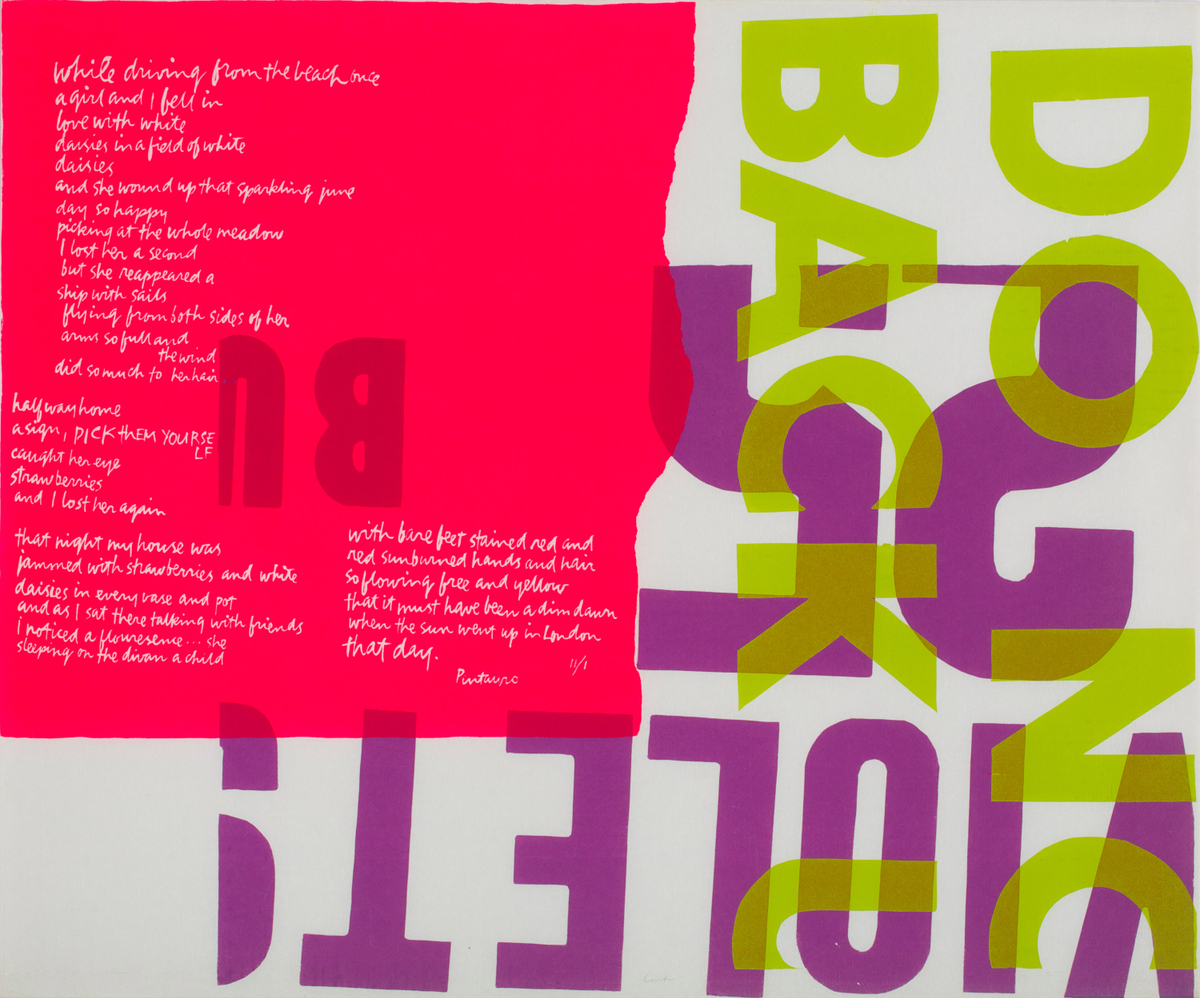 while driving from the beach once
a girl and I fell in
love with white
daisies in a field of white
daisies
and she wound up that sparkling june
day so happy
picking at the whole meadow
I lost her a second
but she reappeared a
ship with sails
flying from both sides of her
arms so full and
the wind
did so much to her hair
halfway home
a sign, PICK thEM YOURSE
LF
caught her eye
strawberries
and I lost her again
that night my house was
jammed with strawberries and white
daisies in every vase and pot
and as I sat there talking with friends
i noticed a flouresence... she
sleeping on the divan a child
with bare feet stained red and
red sunburned hands and hair
so flowing free and yellow
that it must have been a dim dawn
when the sun went up in London
that day.
11/1
Pintauro
DO NC
BACK C
BU
VIOLET